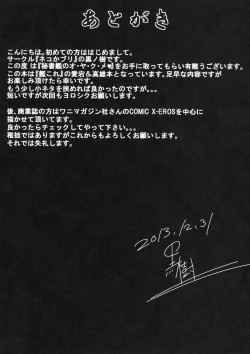 あとがき
こんにちは。初めての方ははじめまして。
サークル『ネコかブリ』の黒ノ樹です。
この度は『秘書艦のオ・ヤ・ク・メ♥』をお手に取ってもらい有難うございます。
この本は『艦これ』の愛宕&高雄本となっています。足早な内容ですが
お楽しみ頂けたら幸いです。
もう少し小ネタを挟めれば良かったのですが。。。
思いつきで動くとダメですね。。。
後、商業誌の方はワニマガジン社さんのCOMIC X-EROSを中心に
描かせて頂いてます。
良かったらチェックしてやって下さい。。。
稚拙ではありますがこれからもよろしくお願いします。
それでは失礼します。
2013.12.31
黒ノ樹